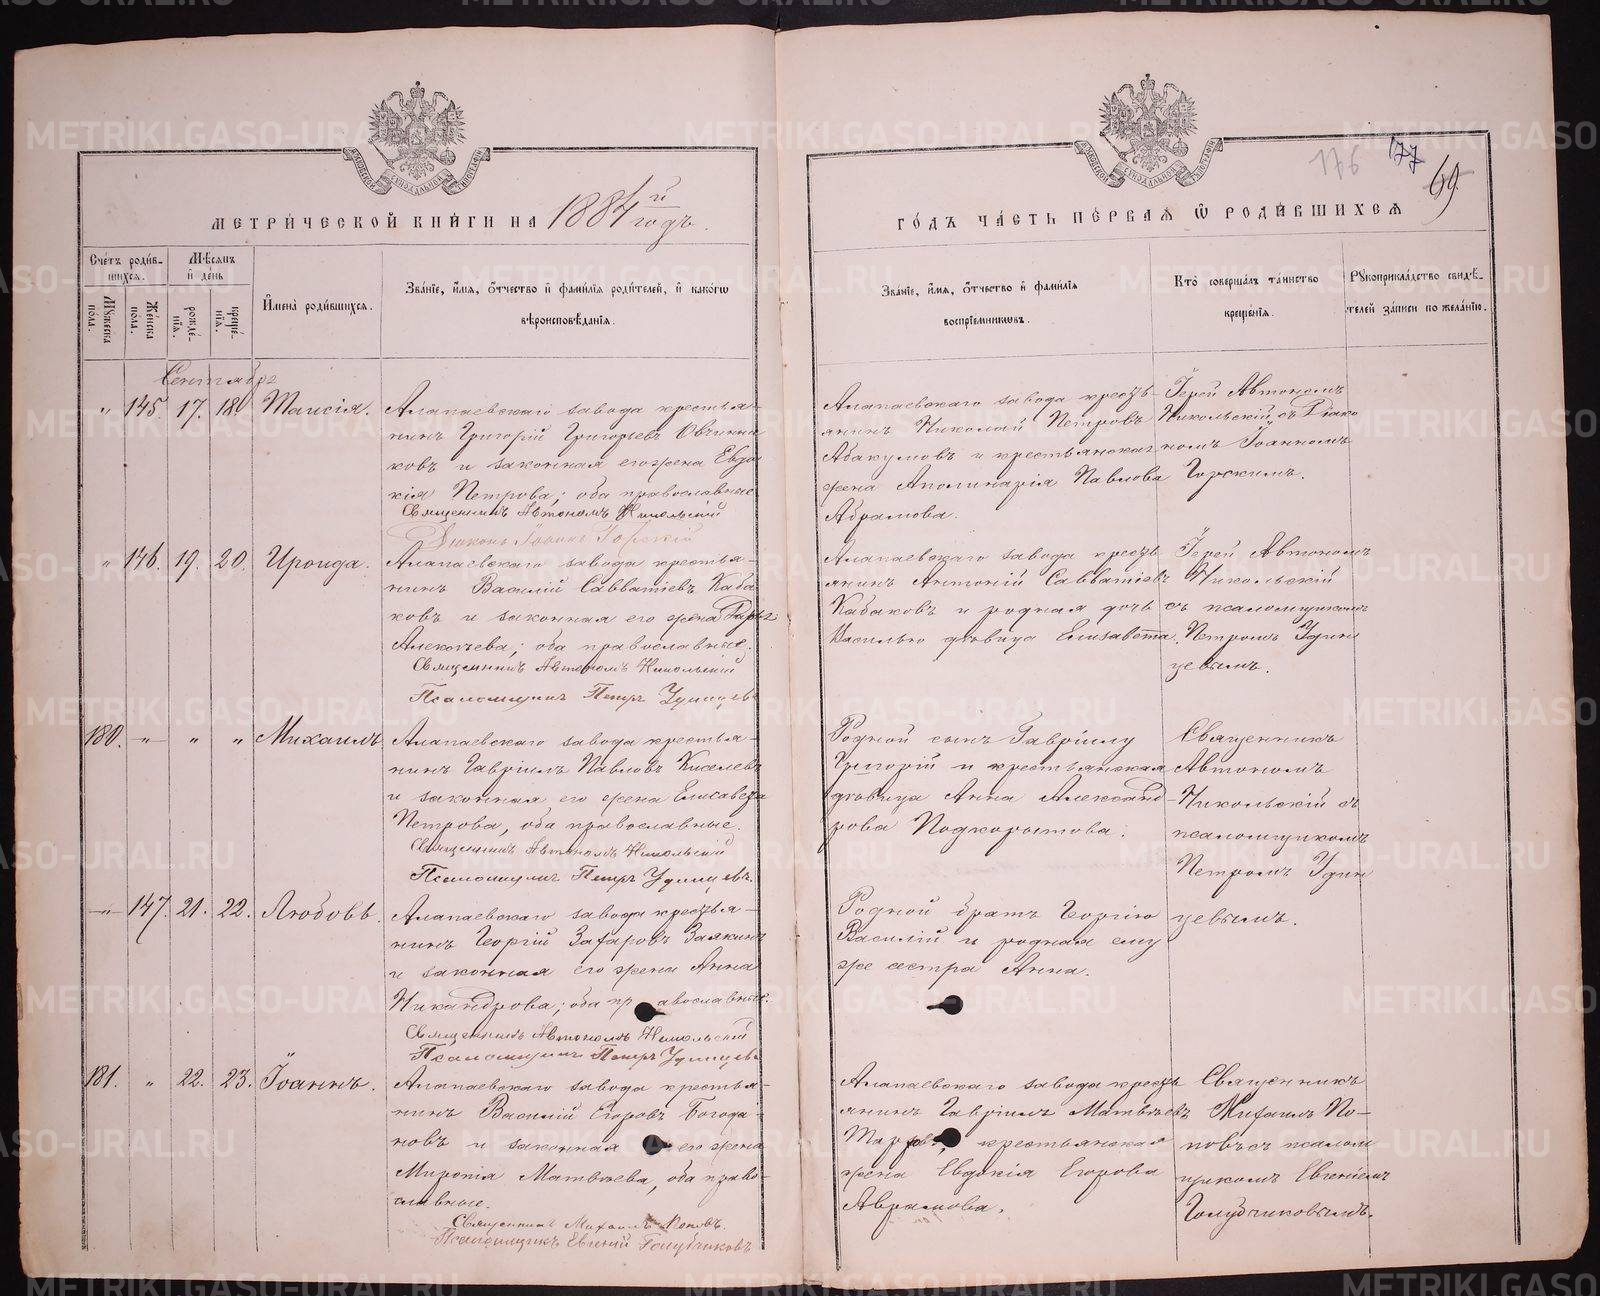 МЕТРИ́ЧЕСКОЙ КНИ́ГИ НА 1884й годъ.
Сче́тъ роди́в-
шихсѧ.
Мѣсѧцъ
и҆ де́нь
Мꙋ́жеска
по́ла.
Же́нска
по́ла.
рожде́-
нїѧ.
креще́-
нїѧ.
И҆мена̀ роди́вшихсѧ.
Зва́нїе, и҆́мѧ, ѻ҆́тчество и҆ фами́лїѧ роди́телей, и҆ како́гѡ
вѣроисповѣ́данїѧ.
Сентябрь
" 145. 17. 18. Таисія.
Алапаевскаго завода крестья-
нинъ Григорій Григорьевъ Овчинни
ковъ и законная его жена Евдо
кія Петрова; оба православные
Священникъ Автономъ Никольскій
Діаконъ Іоаннъ Горскій
" 146. 19. 20. Ираида.
Алапаевскаго завода крестья-
нинъ Василій Савватіевъ Каба
ковъ и законная его жена
Алексѣева; оба православные.
Священникъ Автономъ Никольскій
Псаломщикъ Петръ Удинцевъ
180. " " " Михаилъ.
Алапаевскаго завода крестья-
нинъ Гавріилъ Павловъ Киселевъ
и законная его жена Елисавета
Петрова, оба православные.
Священникъ Автономъ Никольскій
Псаломщикъ Петръ Удинцевъ.
" 147. 21. 22. Любовь.
Алапаевскаго завода крестья-
нинъ Георгій Захаровъ Заякинъ
и законная его жена Анна
Никандрова; оба православные.
Священникъ Автономъ Никольскій
Псаломщикъ Петръ Удинцевъ
181. " 22. 23. Іоаннъ.
Алапаевскаго завода крестья-
нинъ Василій Егоровъ Богода-
новъ и законная его жена
Миропія Матвѣева, оба право-
славные.
Священникъ Михаилъ Поповъ.
Псаломщикъ Евгеній Голубчиковъ
176 177 69.
ГО́ДЪ ЧА́СТЬ ПЕ́РВАѦ Ѿ РОДИ́ВШИХСѦ
Зва́нїе, и҆́мѧ, ѻ҆́тчество и҆ фами́лїѧ
воспрїе́мникѡвъ.
Кто̀ соверша́лъ та́инство
креще́нїѧ.
Рꙋкоприкла́дство свидѣ́-
телей за́писи по жела́нїю.
Алапаевскаго завода кресть-
янинъ Николай Петровъ
Абакумовъ и крестьянская
жена Аполинарія Павлова
Абрамова.
Іерей Автономъ
Никольскій съ Діако
номъ Іоанномъ
Горскимъ.
Алапаевскаго завода кресть
янинъ Антоній Савватіевъ
Кабаковъ и родная дочь
Василью дѣвица Елизавета.
Іерей Автономъ
Никольскій
съ псаломщикомъ
Петромъ Удин
цевымъ.
Родной сынъ Гавріилу
Григорій и крестьянская
дѣвица Анна Александ-
рова Подкорытова.
Священникъ
Автономъ
Никольскій съ
псаломщикомъ
Петромъ Удин
цевымъ.
Родной братъ Георгію
Василій и родная ему
же сестра Анна.
Алапаевскаго завода кресть
янинъ Гавріилъ Матвѣевъ
крестьянская
жена Евдокія Егорова
Аврамова.
Священникъ
Михаилъ По-
повъ съ псалом
щикомъ Евгеніемъ
Голубчиковымъ.
METRIKI.GASO-URAL.RU